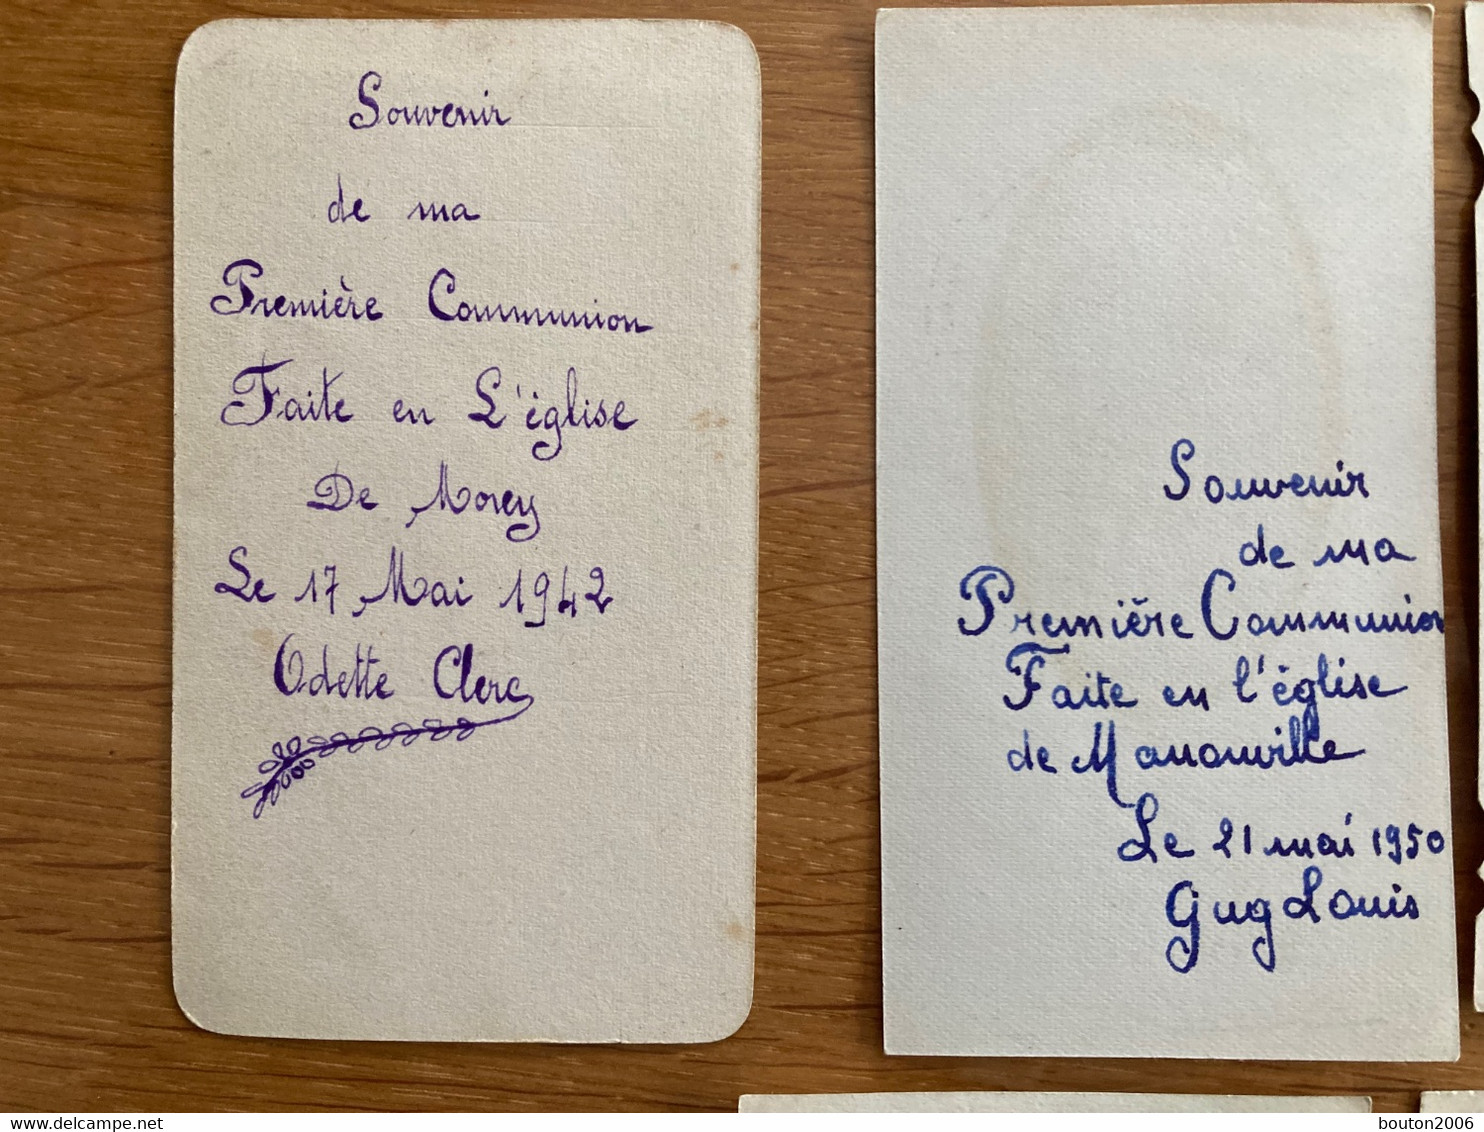 Souvenir
de ma
Première Communion
Faite en L'église
De Morey
Le 17 Mai 1942
Odette Clerc
Souvenir
de ma
Première Communion
Faite en l'église
de Manonville
Le 21 mai 1950
Gug Louis
delcampe.net
bouton2006